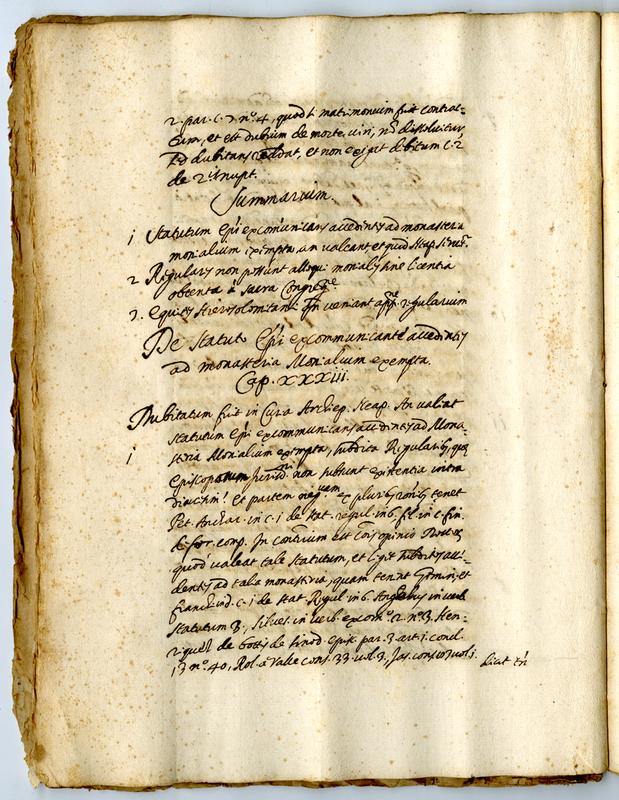 2. par. c. 7. nº. 4, quod si matrimonium fuit contrac=
tum, et est dubium de morte viri, nō dissolvitur
sed dubitans reddat, et non exigat debitum c. 2
de 2.ⁱˢ nupt.
Summarium.
1 Statutum Epī excom̄unicans accedentes ad monasteria
monialium exempta, an valeat et quid Neap. servet̄.
2 Regulares non possunt alloqui moniales sine licentia
obtenta à sacra Congreg.ⁿᵉ
3. equites Hierosolomitani an veniant app.ⁿᵉ regularium
De Statuto Epī excommunicante accedentes
ad monasteria Monialium exempta.
Cap. XXXIII.
Dubitatum fuit in Curia Archiep. Neap. An valeat
statutum Epī excommunicans accedentes ad Mona-
1 steria Monialium exempta, subdita Regularib, quę
Episcoporum Jurisd.ⁿⁱ non subsunt existentia intra
diocesim? Et partem negativam ex pluribus rōnib tenet
Pet. Anchar. in c. 1 de stat. regul. in 6. fil. in c. fin.
de for. comp. In contrium est cōis opinio
quod valeat tale statutum, et ligat subditos acce-
dentes ad talia monasteria, quam tenent Gemin. et
franc. in d. c. 1 de stat. Regul. in 6. Angelus in verb.
statutum 3., silves. in verb. excom. 2. nº. 3. Hen-
riquez de Botti de sinod. epis. par. 3. art. 1. concl.
13 nº. 40, Rol. à Valle cons. 33. vol. 3, Jas. cons. vol. 1.
licet tn̄